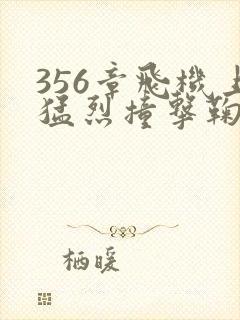 356章飛機上
猛烈撞擊鞠
栖暖